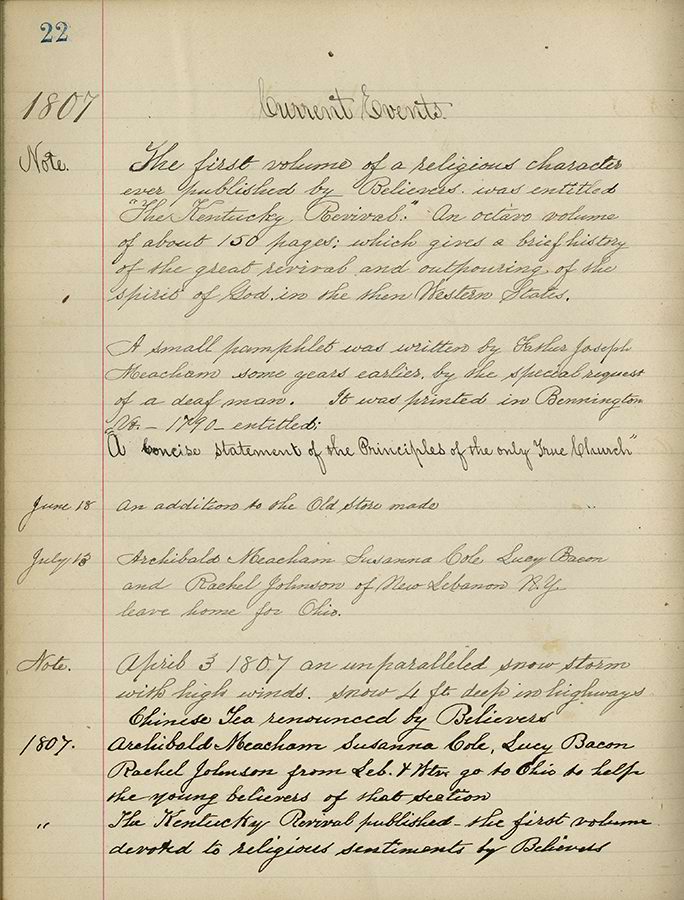 22
1807 Current Events.
Note. The first volume of a religious character
ever published by Believers. was entitled
"The Kentucky Revival." An octavo volume
of about 150 pages: which gives a brief history
of the great revival and outpouring of the
spirit of God. in the then Western States.
A small pamphlet was written by Father Joseph
Meacham some years earlier, by the special request
of a deaf man. It was printed in Bennington
Vt. – 1790 – entitled;
"A concise statement of the Principles of the only True Church"
June 18 An addition to the Old Store made
July 13 Archibald Meacham Susanna Cole Lucy Bacon
and Rachel Johnson of New Lebanon N.Y.
leave home for Ohio.
Note. April 3 1807 an unparalleled snow storm
with high winds. snow 4 ft deep in highways
Chinese Tea renounced by Believers
1807. Archibald Meacham Susanna Cole, Lucy Bacon
Rachel Johnson from Leb. & Wtv go to Ohio to help
the young believers of that section
" The Kentucky Revival published – the first volume
devoted to religious sentiments by Believers